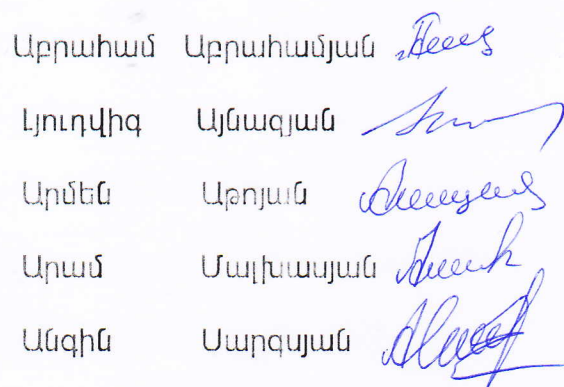 Աբրահամ Աբրահամյան
Լյուդվիգ Այնագյան
Արմեն Աթոյան
Արամ Մալխասյան
Անգին Սարգսյան